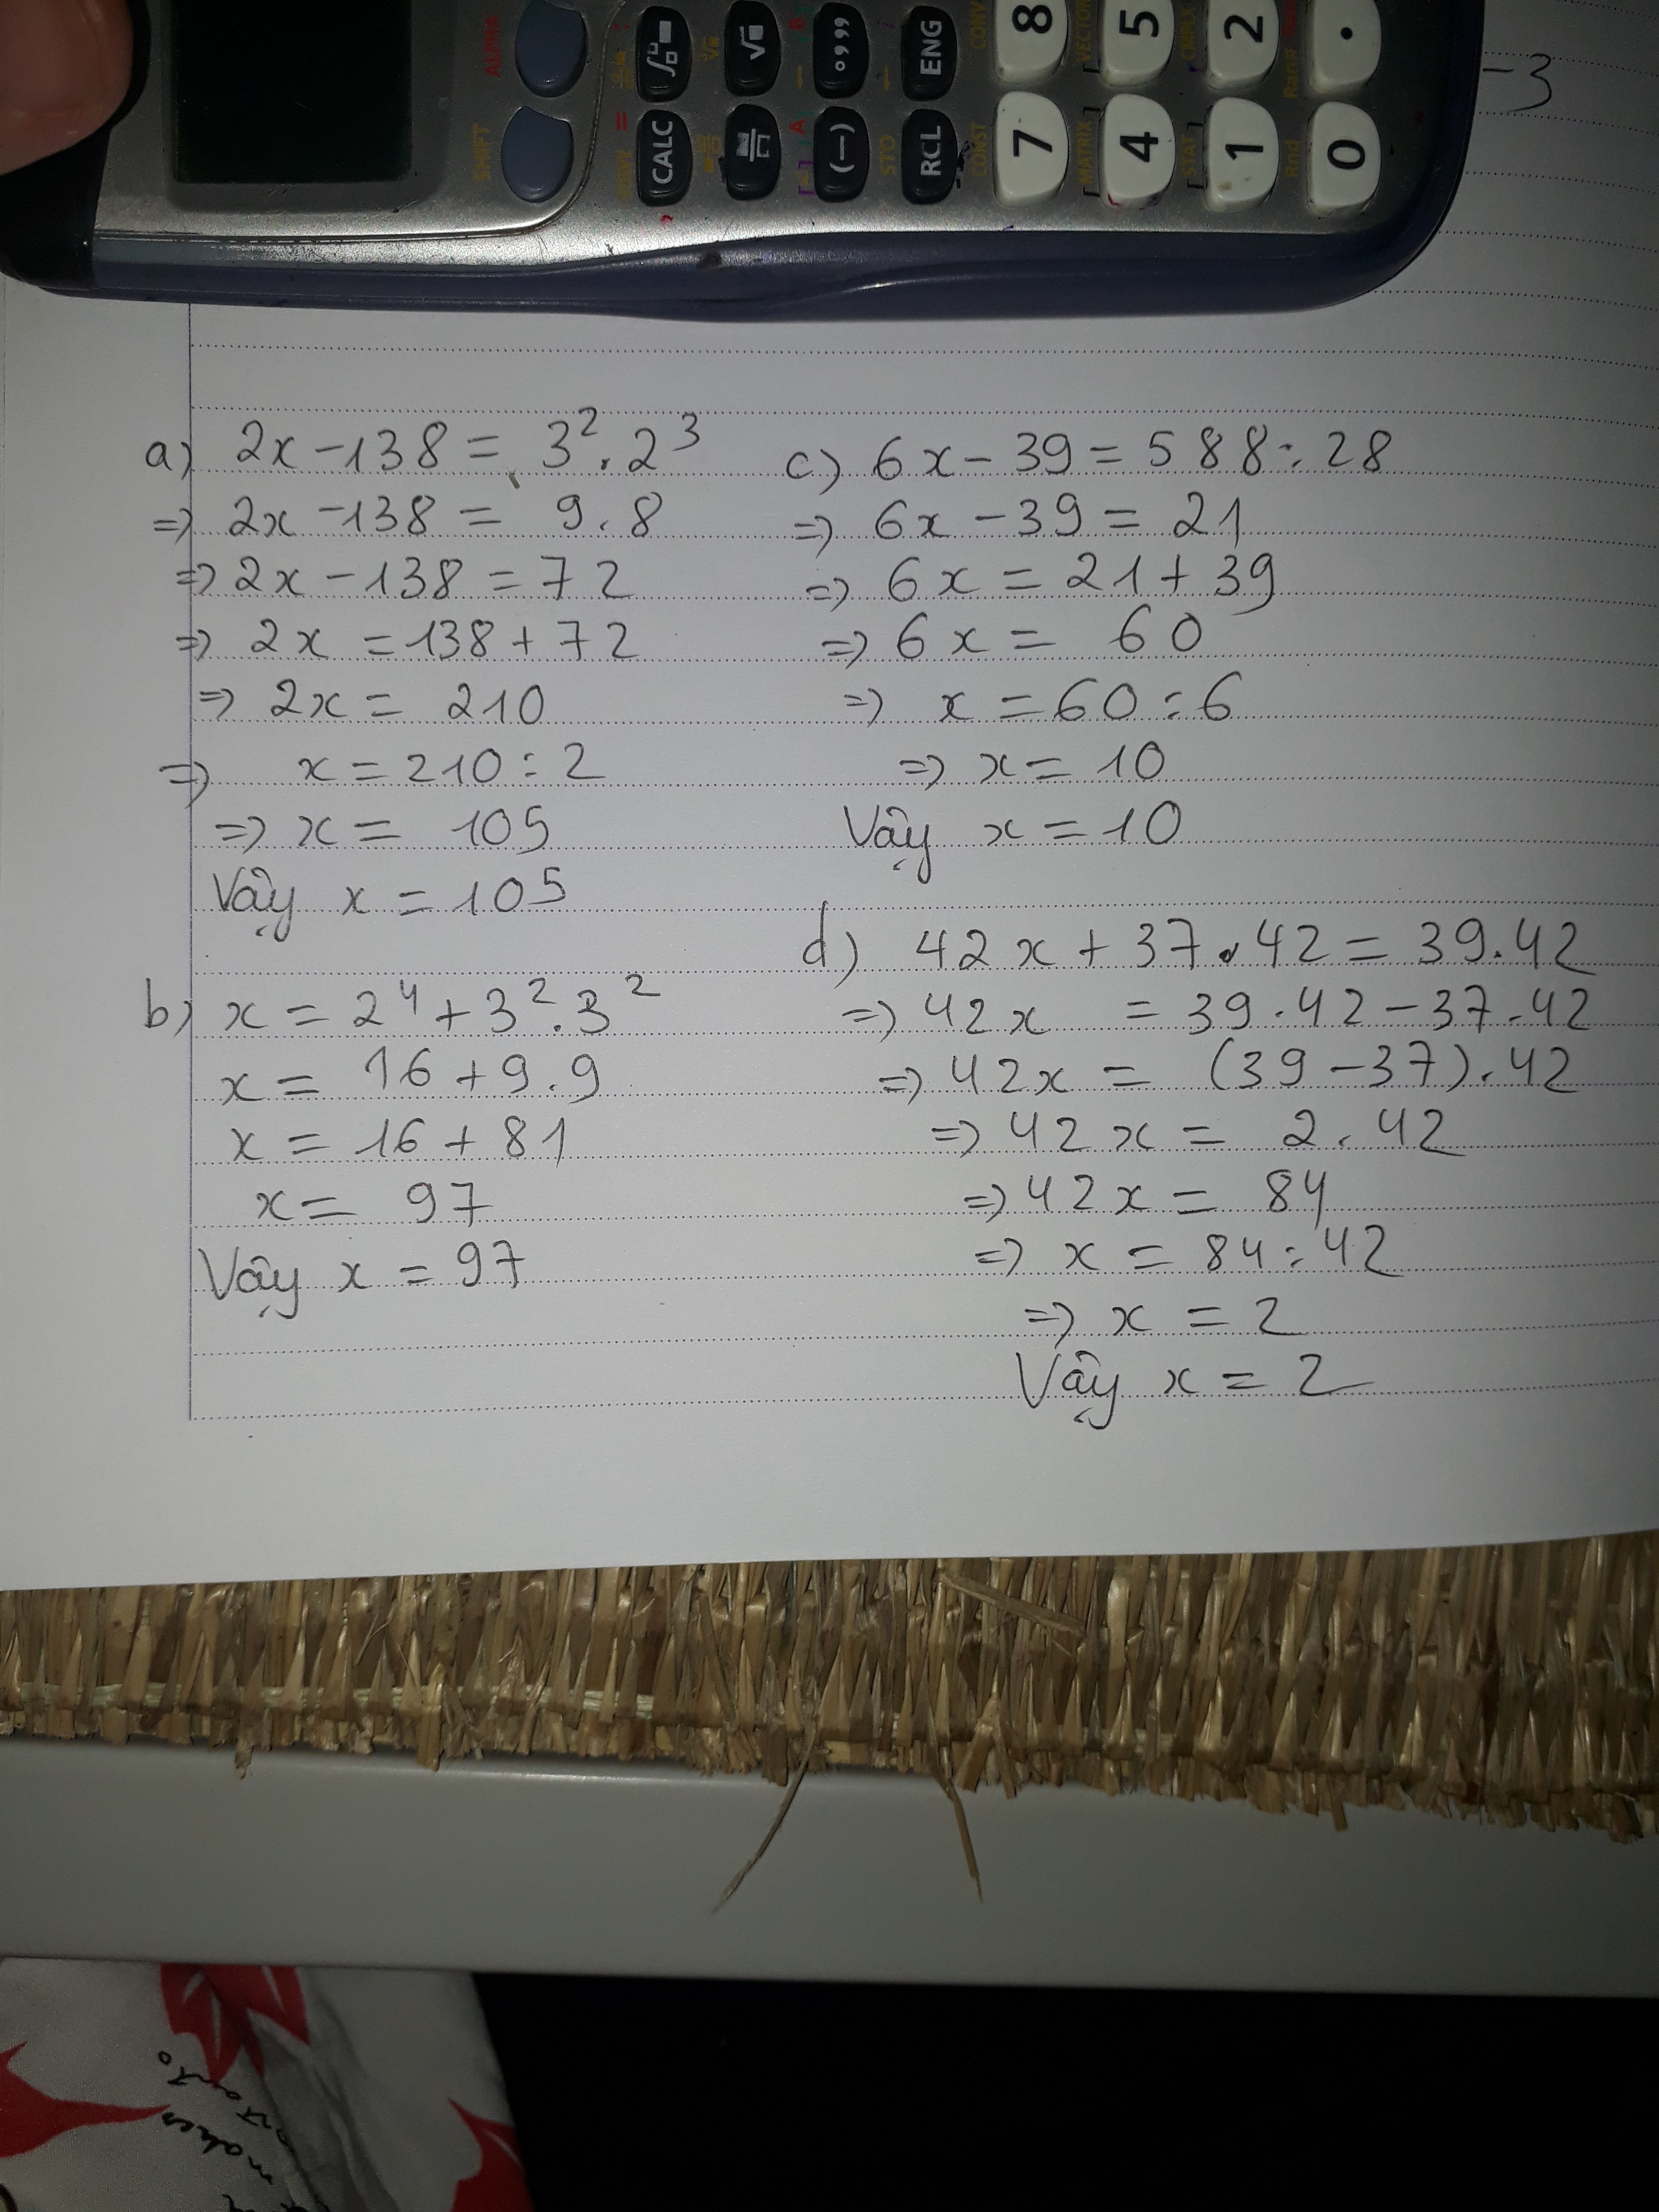 SHIFT
ALPHA
CALC
√
(−)
°,,,
STO
RCL
ENG
CONST
CONV
7
8
MATRIX
VECTOR
4
5
STAT
CMPLX
1
2
Rnd
Ran#
0
.
−3
a) 2x − 138 = 3² . 2³
=> 2x − 138 = 9 . 8
=> 2x − 138 = 72
=> 2x = 138 + 72
=> 2x = 210
=> x = 210 : 2
=> x = 105
Vậy x = 105
b) x = 2⁴ + 3² . 3²
x = 16 + 9 . 9
x = 16 + 81
x = 97
Vậy x = 97
c) 6x − 39 = 588 : 28
=> 6x − 39 = 21
=> 6x = 21 + 39
=> 6x = 60
=> x = 60 : 6
=> x = 10
Vậy x = 10
d) 42x + 37 . 42 = 39 . 42
=> 42x = 39 . 42 − 37 . 42
=> 42x = (39 − 37) . 42
=> 42x = 2 . 42
=> 42x = 84
=> x = 84 : 42
=> x = 2
Vậy x = 2